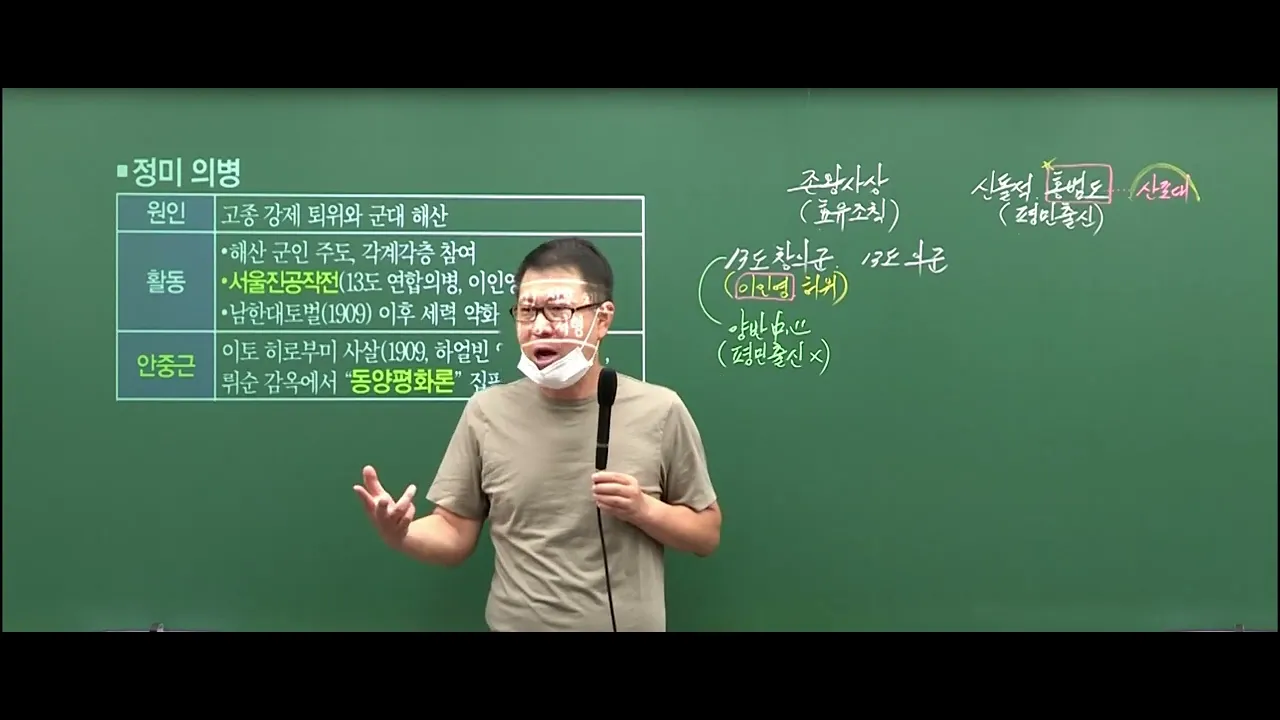 ▪정미 의병
원인
고종 강제 퇴위와 군대 해산
활동
•해산 군인 주도, 각계각층 참여
•서울진공작전(13도 연합의병, 이인영
•남한대토벌(1909) 이후 세력 약화
안중근
이토 히로부미 사살(1909, 하얼빈
뤼순 감옥에서 “동양평화론” 집필
존왕사상
(효유조칙)
신돌석, 홍범도 ····· 산포대
(평민출신)
13도 창의군, 13도 의군
(이인영, 허위)
양반
(평민출신 x)